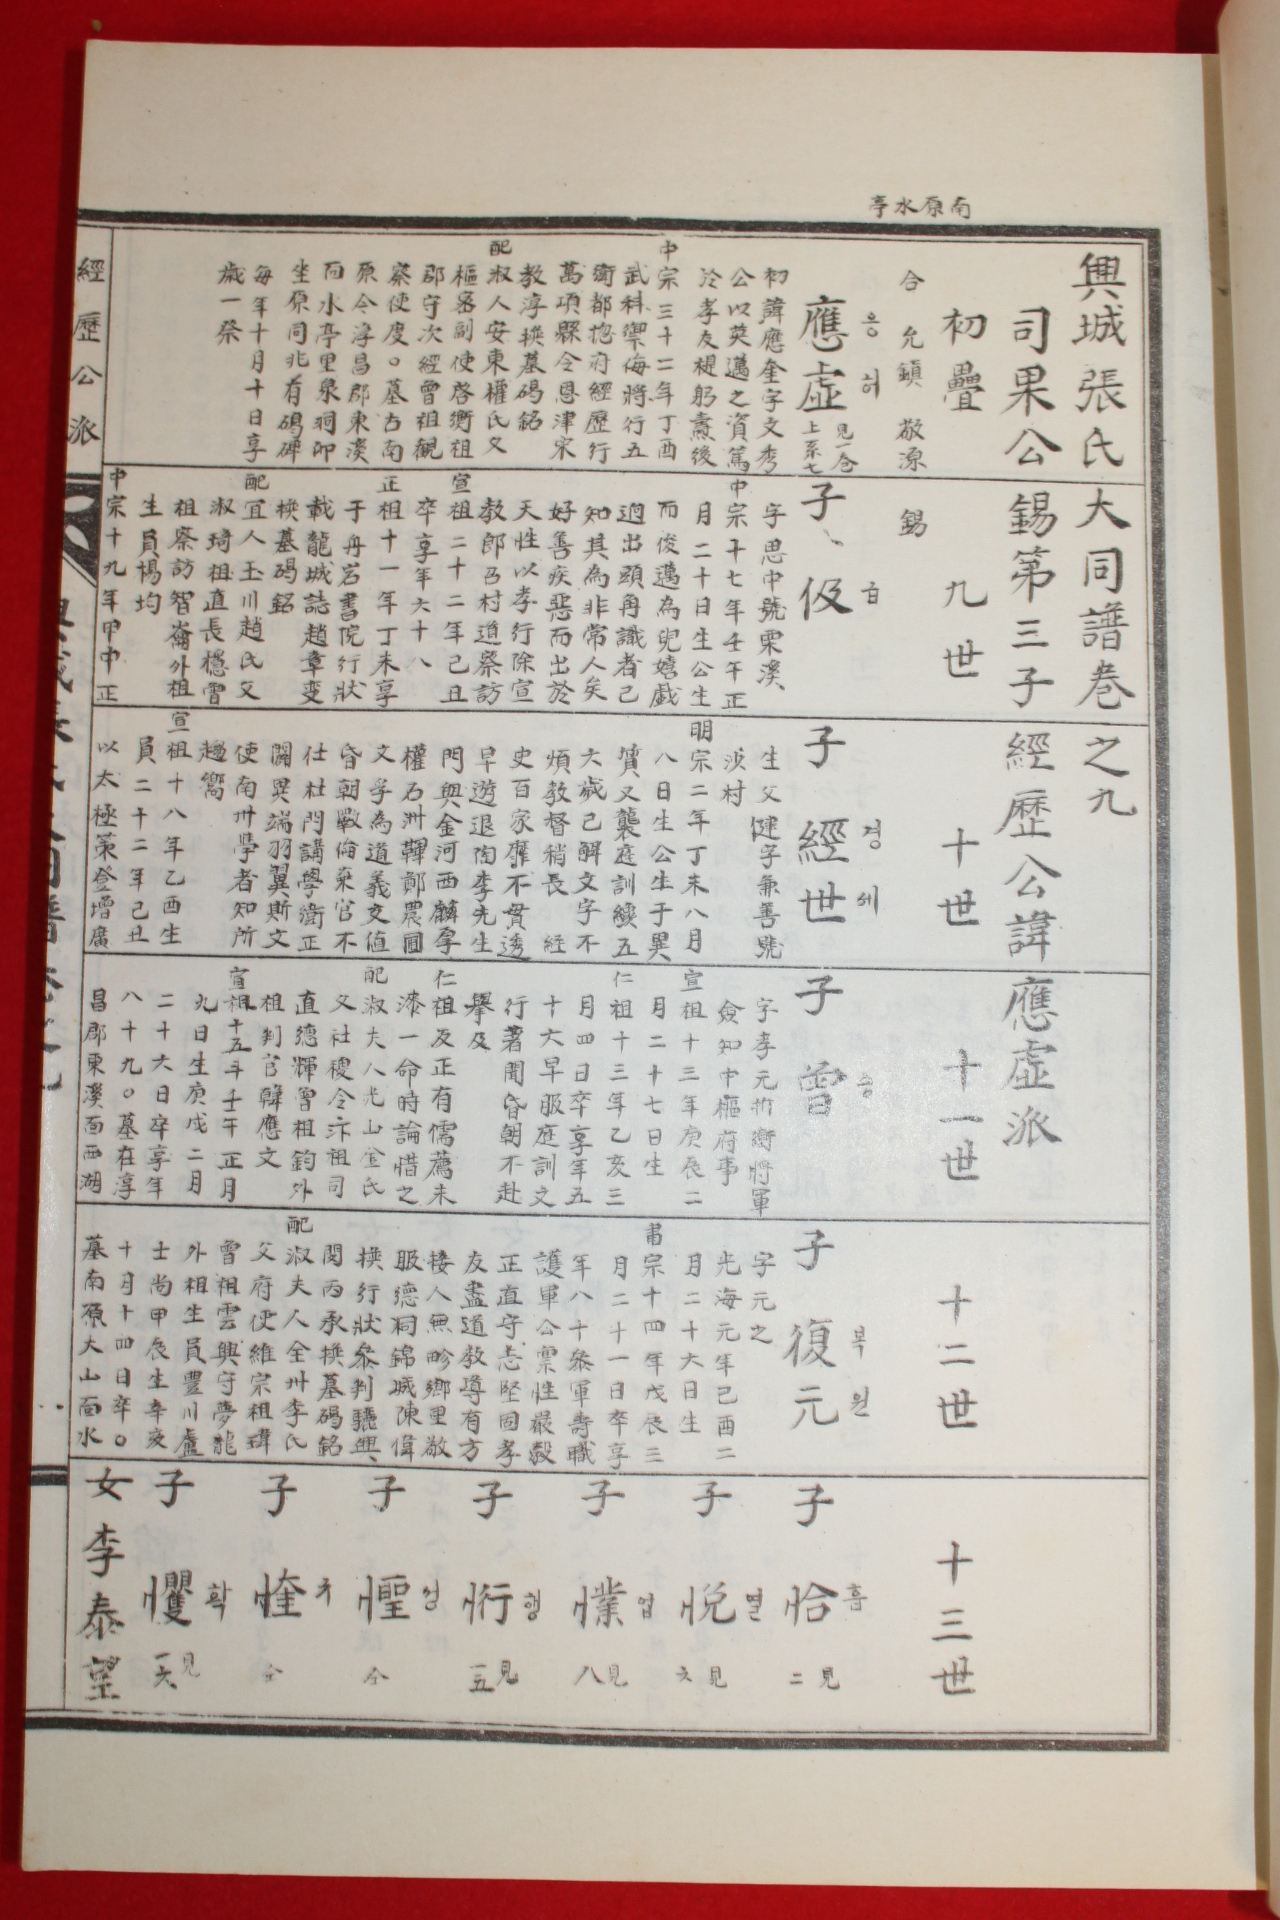 南原水亭
興城張氏大同譜卷之九
司果公錫第三子經歷公諱應虛派
初疊
九世
十世
十一世
十二世
十三世
合 允鎮 敬源 錫
應虛 응허 見一合上系七
初諱應奎字文秀
公以英邁之資篤
於孝友禔躬燾後
中宗三十二年丁酉
武科禦侮將行五
衛都摠府經歷行
萬頃縣令恩津宋
教淳撰墓碣銘
配淑人安東權氏父
樞密副使啓衡祖
郡守次經曾祖觀
察使度○墓古南
原今淳昌郡東溪
面水亭里泉洞卯
坐原同兆有碣碑
每年十月十日享
歲一祭
子 伋 급
字思中號栗溪
中宗十七年壬午正
月二十日生公生
而俊邁為兒嬉戱
逈出頭角識者已
知其為非常人矣
好善疾惡而出於
天性以孝行除宣
教郎召村道察訪
宣祖二十二年己丑
卒享年六十八
正祖十一年丁未享
于丹岩書院行狀
載龍城誌趙章燮
撰墓碣銘
配宜人玉川趙氏父
淑琦祖直長穩曾
祖察訪智崙外祖
生員楊均
中宗十九年甲申正
子 經世 경세
生父健字兼善號
沙村
明宗二年丁未八月
八日生公生于異
質又襲庭訓纔五
六歲已解文字不
煩教督稍長 經
史百家靡不貫透
早遊退陶李先生
門與金河西麟厚
權石洲鞸鄭農圃
文孚為道義交値
昏朝斁倫棄官不
仕杜門講學衛正
闢異端羽翼斯文
使南州學者知所
趨嚮
宣祖十八年乙酉生
員二十二年己丑
以太極策登增廣
子 曾 증
字孝元折衝將軍
僉知中樞府事
宣祖十三年庚辰二
月二十七日生
仁祖十三年乙亥三
月四日卒享年五
十六早服庭訓文
行著聞昏朝不赴
擧及
仁祖及正有儒薦未
漆一命時論惜之
配淑夫人光山金氏
父社稷令汴祖司
直德輝曾祖鈞外
祖判官韓應文
宣祖十五年壬午正月
九日生庚戌二月
二十六日卒享年
八十九○墓在淳
昌郡東溪面西湖
子 復元 복원
字元之
光海元年己酉二
月二十六日生
肅宗十四年戊辰三
月二十一日卒享
年八十叅軍壽職
護軍公禀性嚴毅
正直守志堅固孝
友盡道教導有方
接人無畛鄕里敬
服德祠錦城陳偉
撰行狀叅判驪興
閔丙承撰墓碣銘
配淑夫人全州李氏
父府使維宗祖瑋
曾祖雲興守夢龍
外祖生員豐川盧
士尚甲辰生辛亥
十月十四日卒○
墓南原大山面水
子 恰 흡 見二
子 悅 열 見六
子 㦡 업 見八
子 㤚 행 見一五
子 㦩 싱 仝
子 㤬 규 仝
子 戄 확 見一六
女 李泰望
經歷公派
興城張氏大同譜卷之九